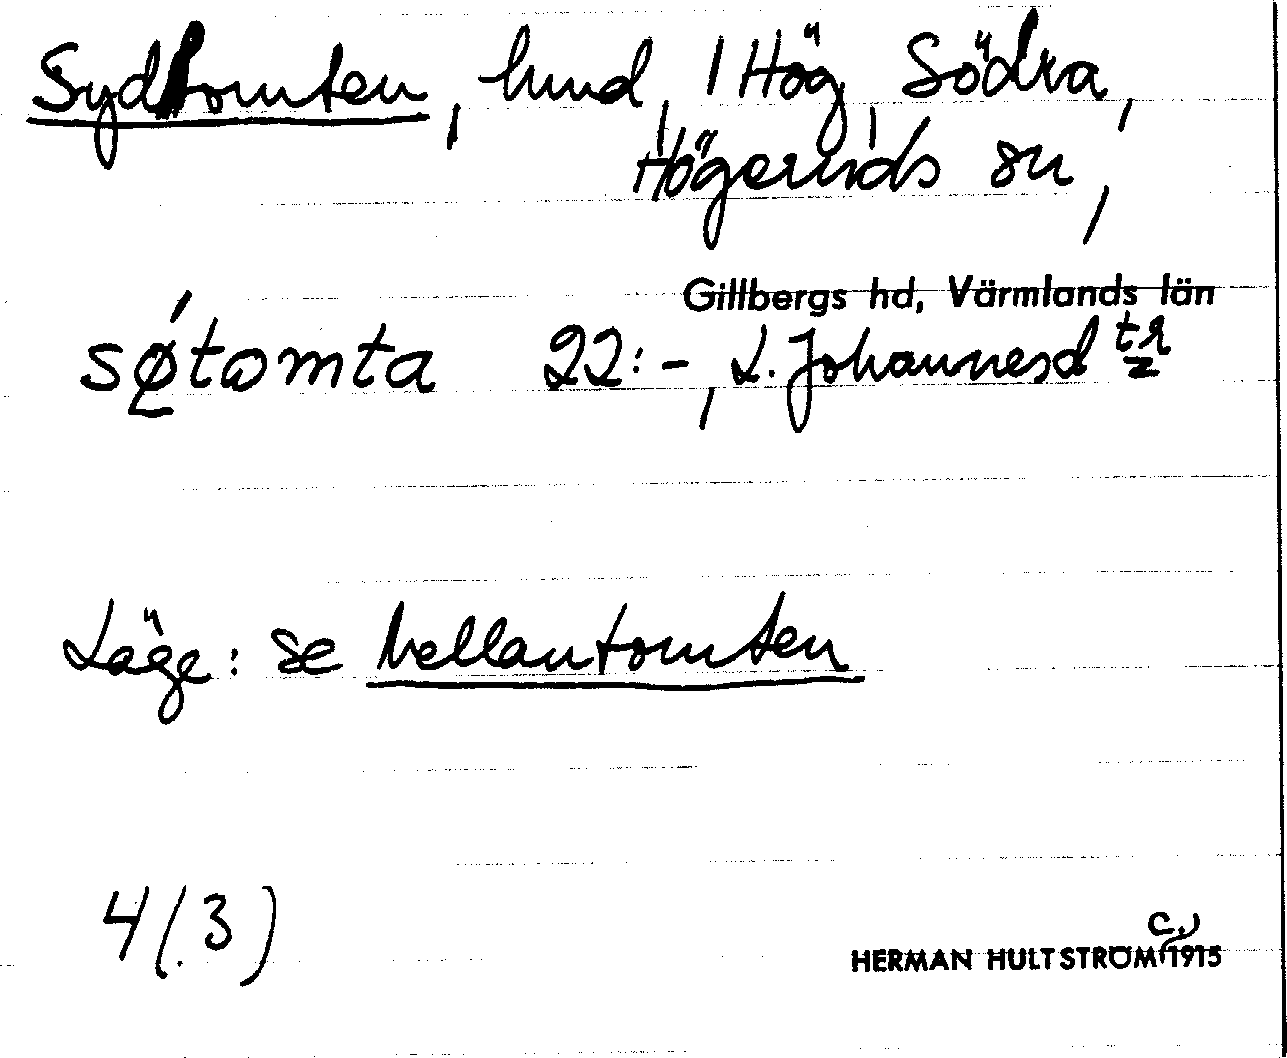 Sydtomten, lund, 1 Hög, Södra,
Högeruds sn,
Gillbergs hd, Värmlands län
søtomta 22:-, L. Johannesd tr
Läge: se Mellantomten
4(.3)
HERMAN HULTSTRÖM, c. 1915